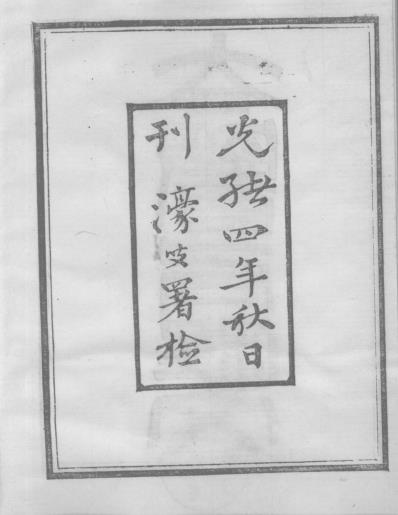 光緒四年秋日
刊 濠叟署檢